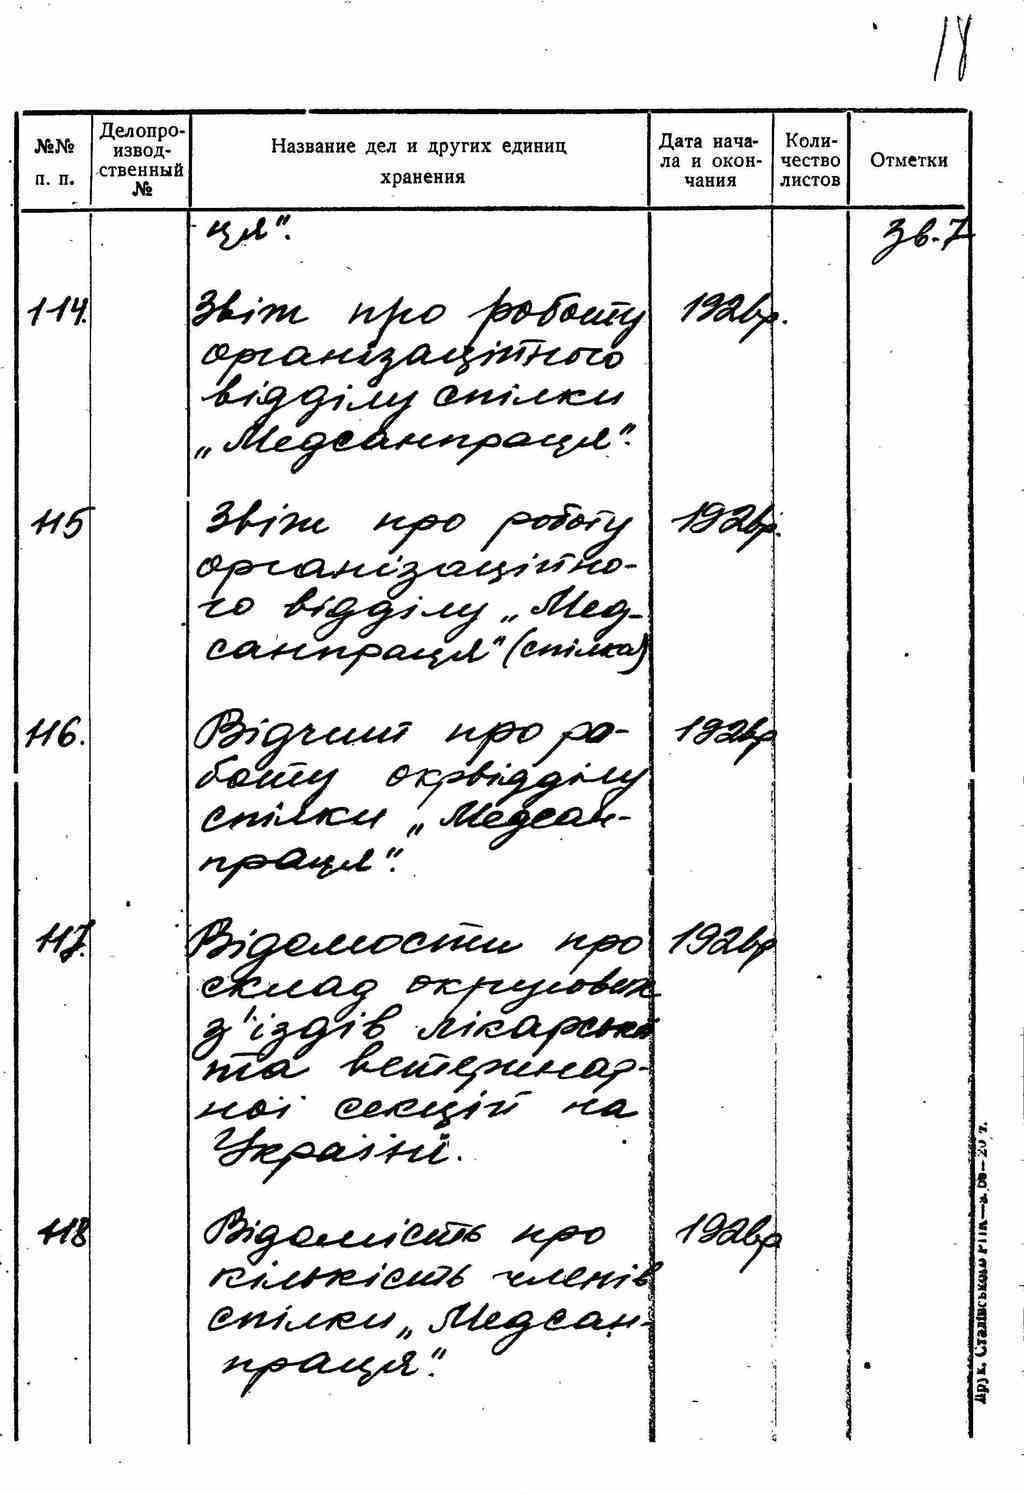 18
№№ п. п.
Делопро-
извод-
ственный
№
Название дел и других единиц
хранения
Дата нача-
ла и окон-
чания
Коли-
чество
листов
Отметки
ця".
Зв. 7
114.
Звіт про роботу
1926р.
організаційного
відділу спілки
„Медсанпраця".
115
Звіт про роботу
1926р.
організаційно-
го відділу „Мед-
санпраця" (спілка)
116.
Відчит про ро-
1926р
боту окрвідділу
спілки „Медсан-
праця".
117.
Відомости про
1926р
склад окружових
з'їздів лікарської
та ветеринар-
ної секцій на
Україні.
118
Відомість про
1926р
кількість членів
спілки „Медсан-
праця".
Друк. Сталінського